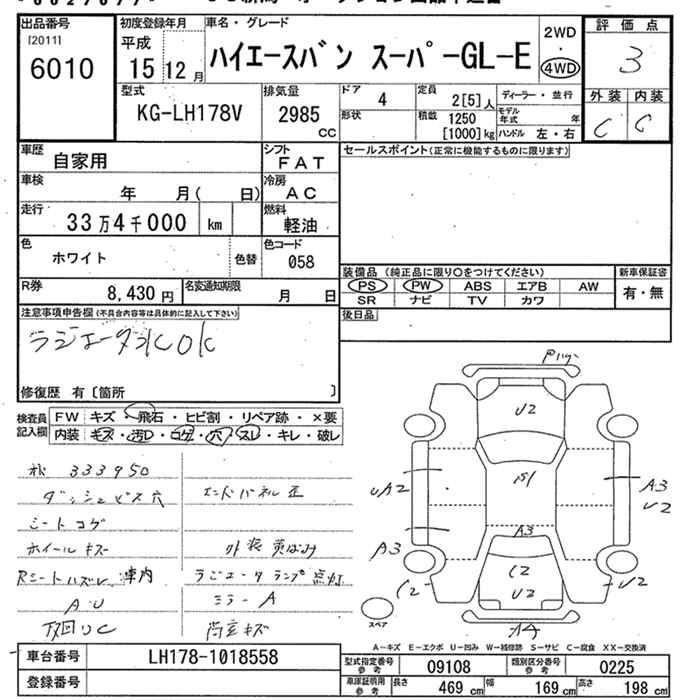 出品番号
[2011]
6010
初度登録年月
平成
15 12 月
車名・グレード
ハイエースバン スーパーGL-E
2WD
・
4WD
評価点
3
外装 内装
C C
型式
KG-LH178V
排気量
2985
cc
ドア
4
形状
定員
2[5]人
積載
1250
[1000]kg
ディーラー・並行
モデル年式 年
ハンドル 左・右
車歴
自家用
シフト
FAT
セールスポイント(正常に機能するものに限ります)
車検
年 月( 日)
冷房
AC
走行
33万4千000 km
燃料
軽油
色
ホワイト
色替
色コード
058
装備品 (純正品に限り○をつけてください)
PS PW ABS エアB AW
SR ナビ TV カワ
新車保証書
有・無
R券
8,430 円
名変通知期限
月 日
後日品
注意事項申告欄(不具合内容等は具体的に記入して下さい)
ラジエータ水OK
修復歴 有〔箇所 〕
検査員
記入欄
FW キズ・飛石・ヒビ割・リペア跡・×要
内装 キズ・汚D・コゲ・穴・スレ・キレ・破レ
333950
ダッシュビス穴
シートコゲ
ホイールキズ
Rシートハズレ 車内
A・U
エンドパネル 歪
外装 黄ばみ
ラジエータランプ点灯
ミラーA
荷室キズ
U2
A3
UA2
A3
U2
A3
A3
C2
C2
U2
U2
A4
スペア
A-キズ E-エクボ U-凹み W-補修跡 S-サビ C-腐食 XX-交換済
車台番号
LH178-1018558
登録番号
型式指定番号
参考
09108
類別区分番号
参考
0225
車庫証明用
参考
長さ
469 cm
幅
169 cm
高さ
198 cm